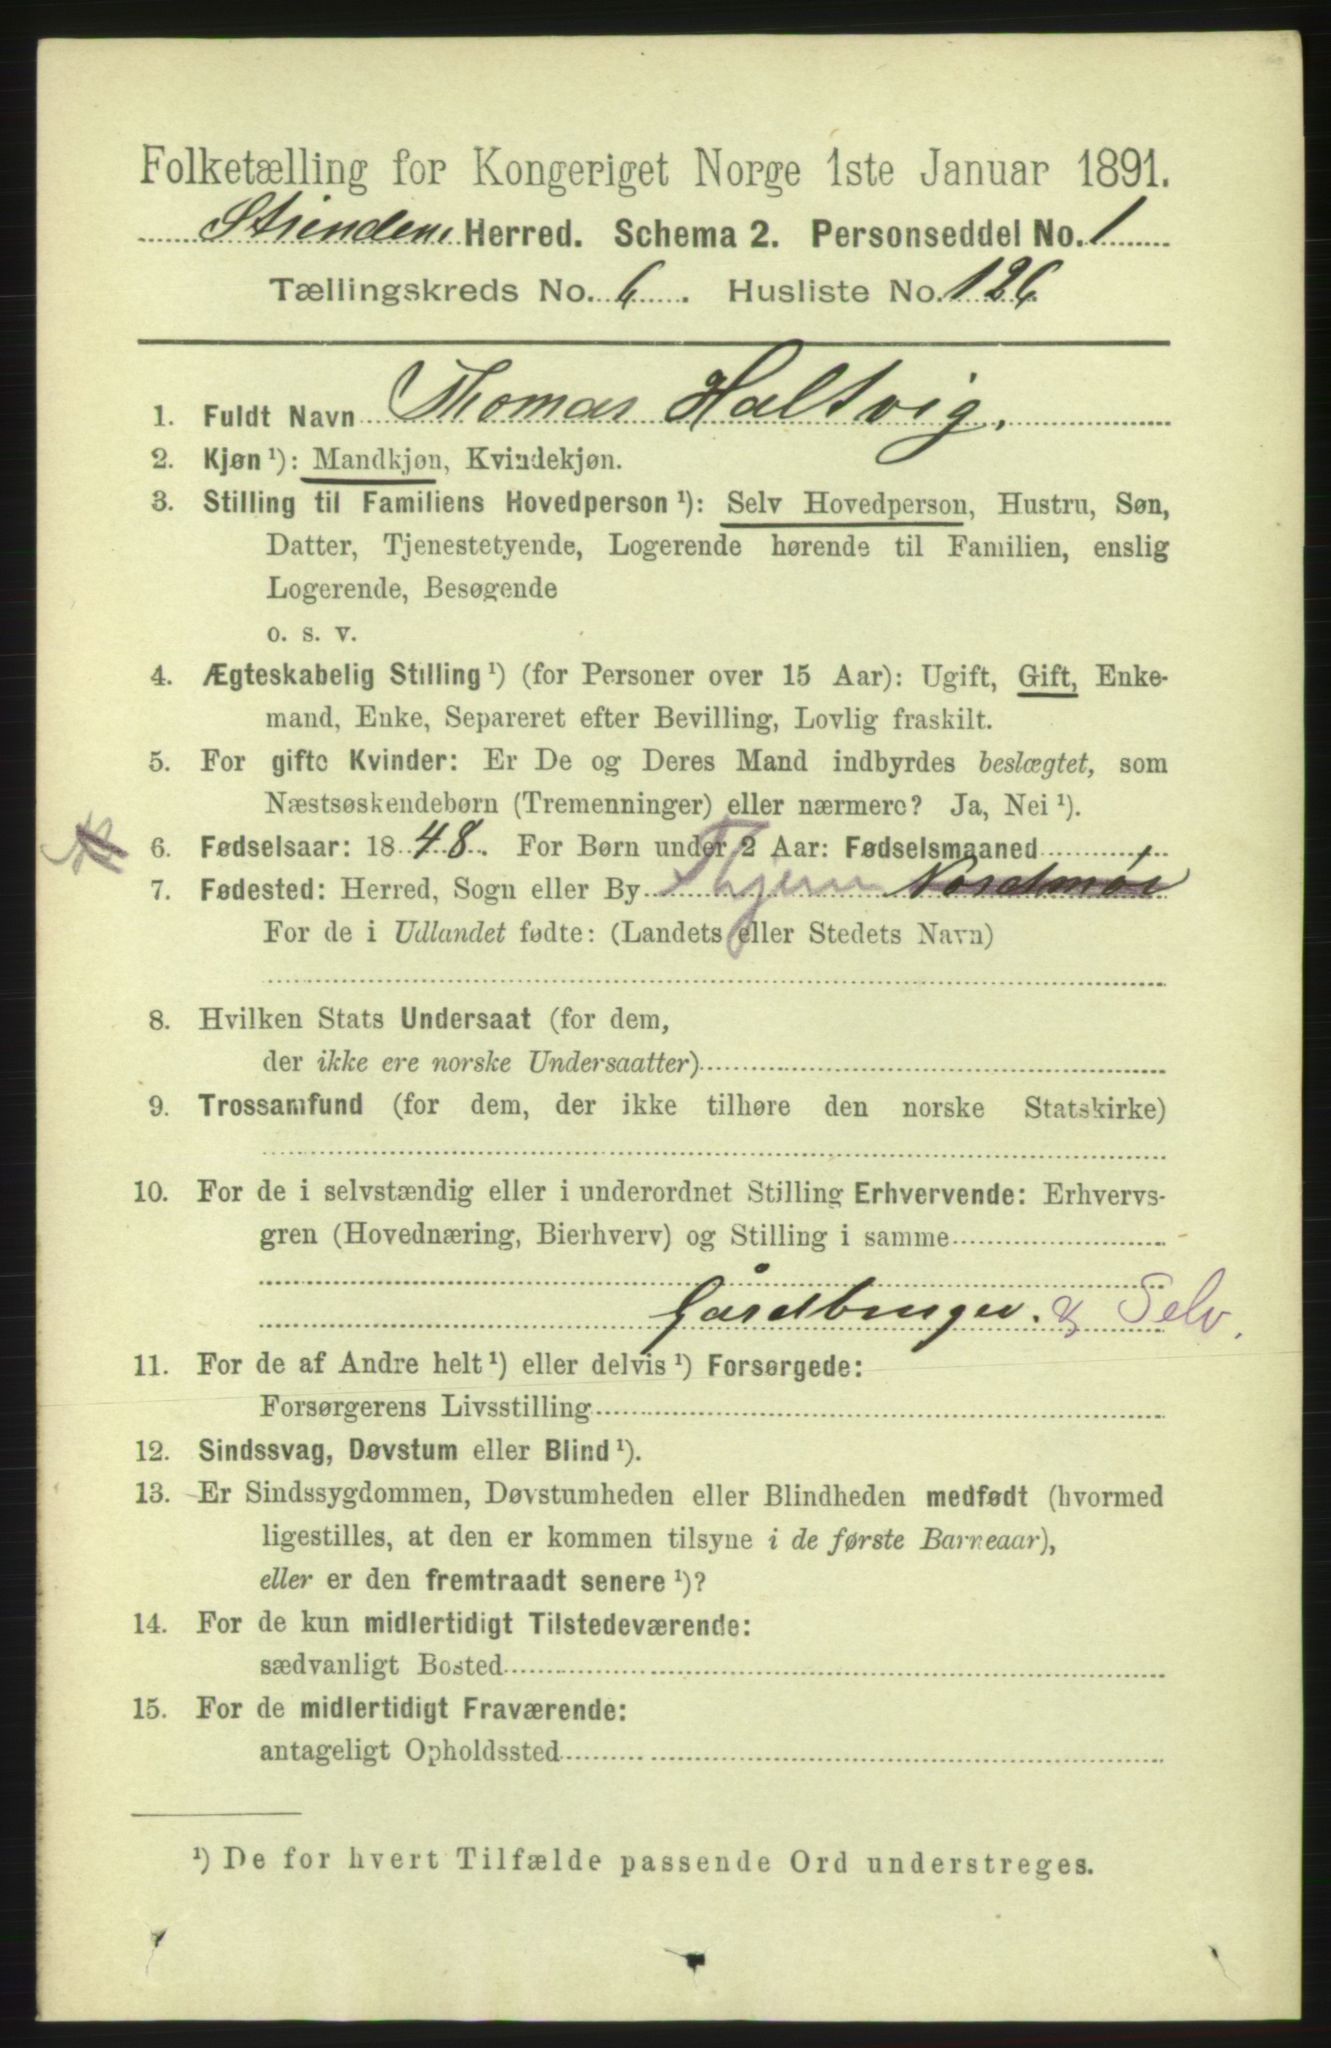 Folketælling for Kongeriget Norge 1ste Januar 1891.
Strinden Herred. Schema 2. Personseddel No. 1
Tællingskreds No. 6. Husliste No. 126.
1. Fuldt Navn Thomas Haltvig.
2. Kjøn ¹): Mandkjøn, Kvindekjøn.
3. Stilling til Familiens Hovedperson ¹): Selv Hovedperson, Hustru, Søn,
Datter, Tjenestetyende, Logerende hørende til Familien, enslig
Logerende, Besøgende
o. s. v.
4. Ægteskabelig Stilling ¹) (for Personer over 15 Aar): Ugift, Gift, Enke-
mand, Enke, Separeret efter Bevilling, Lovlig fraskilt.
5. For gifte Kvinder: Er De og Deres Mand indbyrdes beslægtet, som
Næstsøskendebørn (Tremenninger) eller nærmere? Ja, Nei ¹).
6. Fødselsaar: 1848. For Børn under 2 Aar: Fødselsmaaned
7. Fødested: Herred, Sogn eller By Nordmør
For de i Udlandet fødte: (Landets eller Stedets Navn)
8. Hvilken Stats Undersaat (for dem,
der ikke ere norske Undersaatter)
9. Trossamfund (for dem, der ikke tilhøre den norske Statskirke)
10. For de i selvstændig eller i underordnet Stilling Erhvervende: Erhvervs-
gren (Hovednæring, Bierhverv) og Stilling i samme
Gårdbruger. & Selv.
11. For de af Andre helt ¹) eller delvis ¹) Forsørgede:
Forsørgerens Livsstilling
12. Sindssvag, Døvstum eller Blind ¹).
13. Er Sindssygdommen, Døvstumheden eller Blindheden medfødt (hvormed
ligestilles, at den er kommen tilsyne i de første Barneaar),
eller er den fremtraadt senere ¹)?
14. For de kun midlertidigt Tilstedeværende:
sædvanligt Bosted
15. For de midlertidigt Fraværende:
antageligt Opholdssted
¹) De for hvert Tilfælde passende Ord understreges.